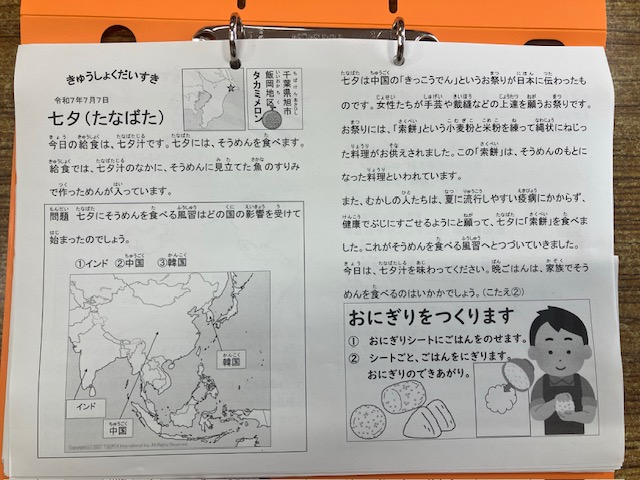 きゅうしょくだいすき
令和7年7月7日
七夕(たなばた)
千葉県旭市
飯岡地区
タカミメロン
今日の給食は、七夕汁です。七夕には、そうめんを食べます。
給食では、七夕汁のなかに、そうめんに見立てた魚のすりみ
で作っためんが入っています。
問題 七夕にそうめんを食べる風習はどの国の影響を受けて
始まったのでしょう。
①インド ②中国 ③韓国
韓国
インド
中国
七夕は中国の「きっこうでん」というお祭りが日本に伝わったも
のです。女性たちが手芸や裁縫などの上達を願うお祭りです。
お祭りには、「索餅」という小麦粉と米粉を練って縄状にねじっ
た料理がお供えされました。この「索餅」は、そうめんのもとに
なった料理といわれています。
また、むかしの人たちは、夏に流行しやすい疫病にかからず、
健康でぶじにすごせるようにと願って、七夕に「索餅」を食べま
した。これがそうめんを食べる風習へとつづいていきました。
今日は、七夕汁を味わってください。晩ごはんは、家族でそう
めんを食べるのはいかがでしょう。(こたえ②)
おにぎりをつくります
① おにぎりシートにごはんをのせます。
② シートごと、ごはんをにぎります。
おにぎりのできあがり。